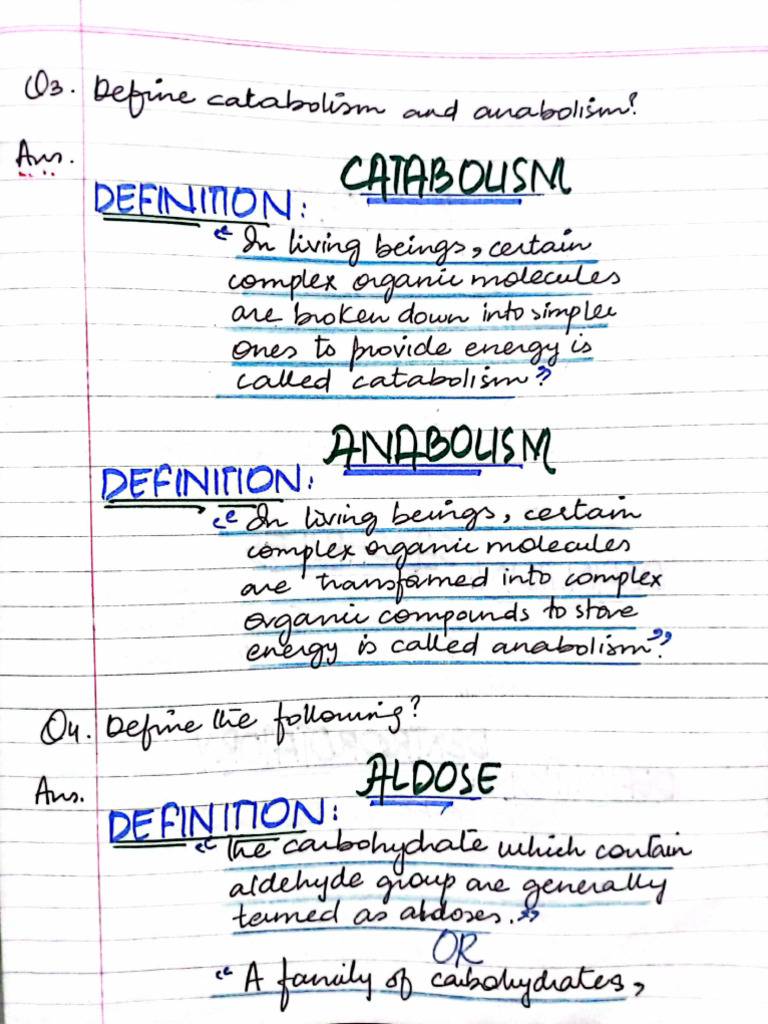 Q3. Define catabolism and anabolism?
Ans.
CATABOLISM
DEFINITION:
“In living beings, certain
complex organic molecules
are broken down into simpler
ones to provide energy is
called catabolism”
ANABOLISM
DEFINITION:
“In living beings, certain
complex organic molecules
are transformed into complex
organic compounds to store
energy is called anabolism”.
Q4. Define the following?
Ans.
ALDOSE
DEFINITION:
“The carbohydrate which contain
aldehyde group are generally
termed as aldoses.”
OR
“A family of carbohydrates,